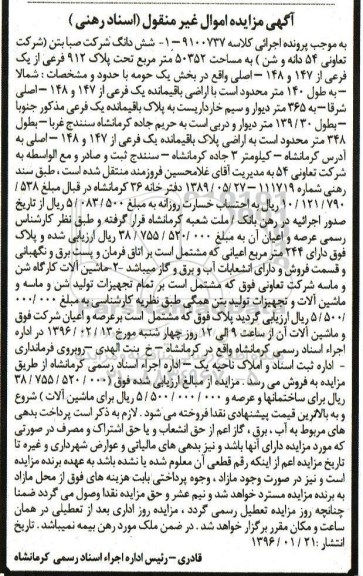 آگهی مزایده اموال غیر منقول (اسناد رهنی)
به موجب پرونده اجرائی کلاسه ۹۱۰۰۷۳۷ – ۱- شش دانگ شرکت صبا بتن (شرکت
تعاونی ۵۴ دانه و شن) به مساحت ۵۰۳۵۲ متر مربع تحت پلاک ۹۱۲ فرعی از یک
فرعی از ۱۴۷ و ۱۴۸ – اصلی واقع در بخش یک حومه با حدود و مشخصات: شمالا
– به طول ۱۴۰ متر محدود است با اراضی باقیمانده یک فرعی از ۱۴۷ و ۱۴۸ – اصلی
شرقا – به ۳۶۵ متر دیوار و سیم خارداریست به پلاک باقیمانده یک فرعی مذکور جنوبا
– بطول ۱۳۹/۳۰ متر دیوار و دربی است به حریم جاده کرمانشاه سنندج غربا – بطول
۳۴۸ متر محدود است به اراضی پلاک باقیمانده یک فرعی از ۱۴۷ و ۱۴۸ – اصلی به
آدرس کرمانشاه – کیلومتر ۳ جاده کرمانشاه – سنندج ثبت و صادر و مع الواسطه به
شرکت تعاونی ۵۴ به مدیریت آقای غلامحسین فروزمند منتقل شده است، طبق سند
رهنی شماره ۱۱۱۷۱۹ – ۱۳۸۹/۰۵/۲۷ دفتر خانه ۳۶ کرمانشاه در قبال مبلغ ۵۳۸/
۷۹۰/۱۲۱/۱۰ ریال به احتساب خسارت روزانه به مبلغ ۵/۰۸۳/۵۰۰ ریال از تاریخ
صدور اجرائیه در رهن بانک / ملت شعبه کرمانشاه قرار گرفته و طبق نظر کارشناس
رسمی عرصه و اعیان آن به مبلغ ۳۸/۷۵۵/۵۲۰/۰۰۰ ریال ارزیابی شده و پلاک
فوق دارای ۲۴۴ متر مربع اعیانی که مشتمل است بر اتاق فرمان و پست برق و نگهبانی
و قسمت فروش و دارای انشعابات آب و برق و گاز میباشد ۲- ماشین آلات کارگاه شن
و ماسه شرکت تعاونی فوق که مشتمل است بر تمام تجهیزات تولید شن و ماسه و
ماشین آلات و تجهیزات تولید بتن همگی طبق نظریه کارشناسی به مبلغ ۰۰۰/۰۰۰
/۵/۵۰۰ ریال ارزیابی گردید پلاک فوق که مشتمل است بر عرصه و اعیان شرکت فوق
و ماشین آلات آن از ساعت ۹ الی ۱۲ روز چهار شنبه مورخ ۱۳۹۶/۰۲/۱۳ در اداره
اجراء اسناد رسمی کرمانشاه واقع در کرمانشاه – خ بنت الهدی – روبروی فرمانداری
– اداره ثبت اسناد و املاک ناحیه یک – اداره اجراء اسناد رسمی کرمانشاه از طریق
مزایده به فروش می رسد. مزایده از مبالغ ارزیابی شده فوق (۳۸/۷۵۵/۵۲۰/۰۰۰
ریال برای ساختمانها و عرصه و ۵/۵۰۰/۰۰۰/۰۰۰ ریال برای ماشین آلات) شروع
و به بالاترین قیمت پیشنهادی نقدا فروخته می شود. لازم به ذکر است پرداخت بدهی
های مربوط به آب، برق، گاز اعم از حق انشعاب و یا حق اشتراک و مصرف در صورتی
که مورد مزایده دارای آنها باشد و نیز بدهی های مالیاتی و عوارض شهرداری و غیره تا
تاریخ مزایده اعم از اینکه رقم قطعی آن معلوم شده یا نشده باشد به عهده برنده مزایده
است و نیز در صورت وجود مازاد، وجوه پرداختی بابت هزینه های فوق از محل مازاد
به برنده مزایده مسترد خواهد شد و نیم عشر و حق مزایده نقدا وصول می گردد ضمنا
چنانچه روز مزایده تعطیل رسمی گردد، مزایده روز اداری بعد از تعطیلی در همان
ساعت و مکان مقرر برگزار خواهد شد. در ضمن ملک مورد رهن بیمه نمیباشد. تاریخ
انتشار: ۱۳۹۶/۰۱/۲۱
قادری – رئیس اداره اجراء اسناد رسمی کرمانشاه